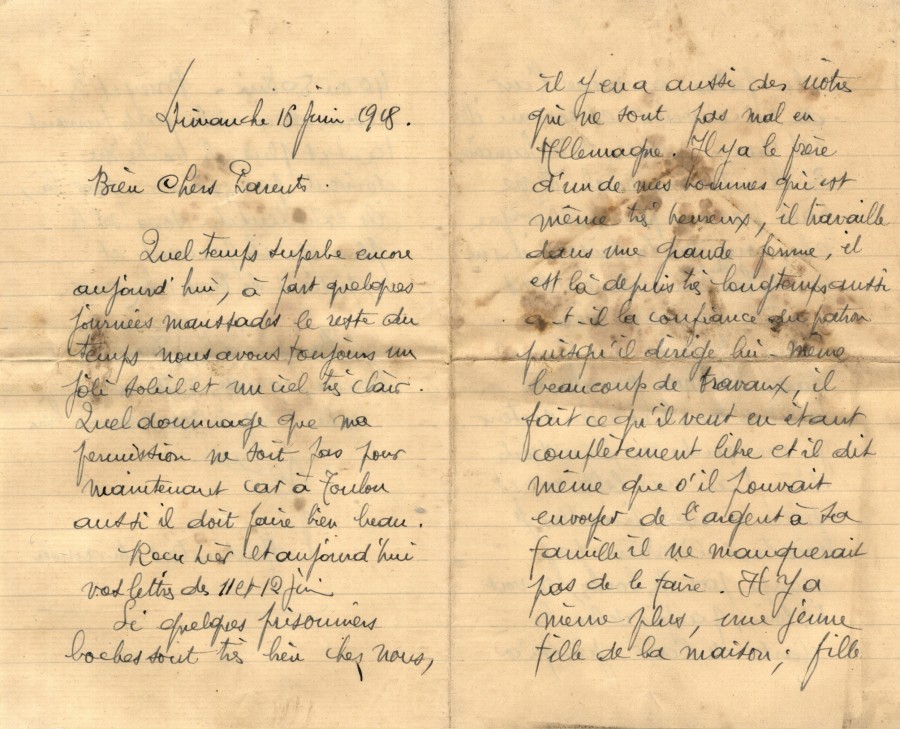 Dimanche 16 juin 1918.
Bien Chers Parents.
Quel temps superbe encore
aujourd'hui, à part quelques
journées maussades le reste du
temps nous avons toujours un
joli soleil et un ciel très clair.
Quel dommage que ma
permission ne soit pas pour
maintenant car à Toulon
aussi il doit faire bien beau.
Reçu hier et aujourd'hui
vos lettres des 11 et 12 juin
Si quelques prisonniers
boches sont très bien chez nous,
il y en a aussi des nôtres
qui ne sont pas mal en
Allemagne. Il y a le frère
d'un de mes hommes qui est
même très heureux, il travaille
dans une grande ferme, il
est là depuis très longtemps aussi
a-t-il la confiance du patron
puisqu'il dirige lui-même
beaucoup de travaux, il
fait ce qu'il veut en étant
complètement libre et il dit
même que s'il pouvait
envoyer de l'argent à sa
famille il ne manquerait
pas de le faire. Il y a
même plus, une jeune
fille de la maison, fille